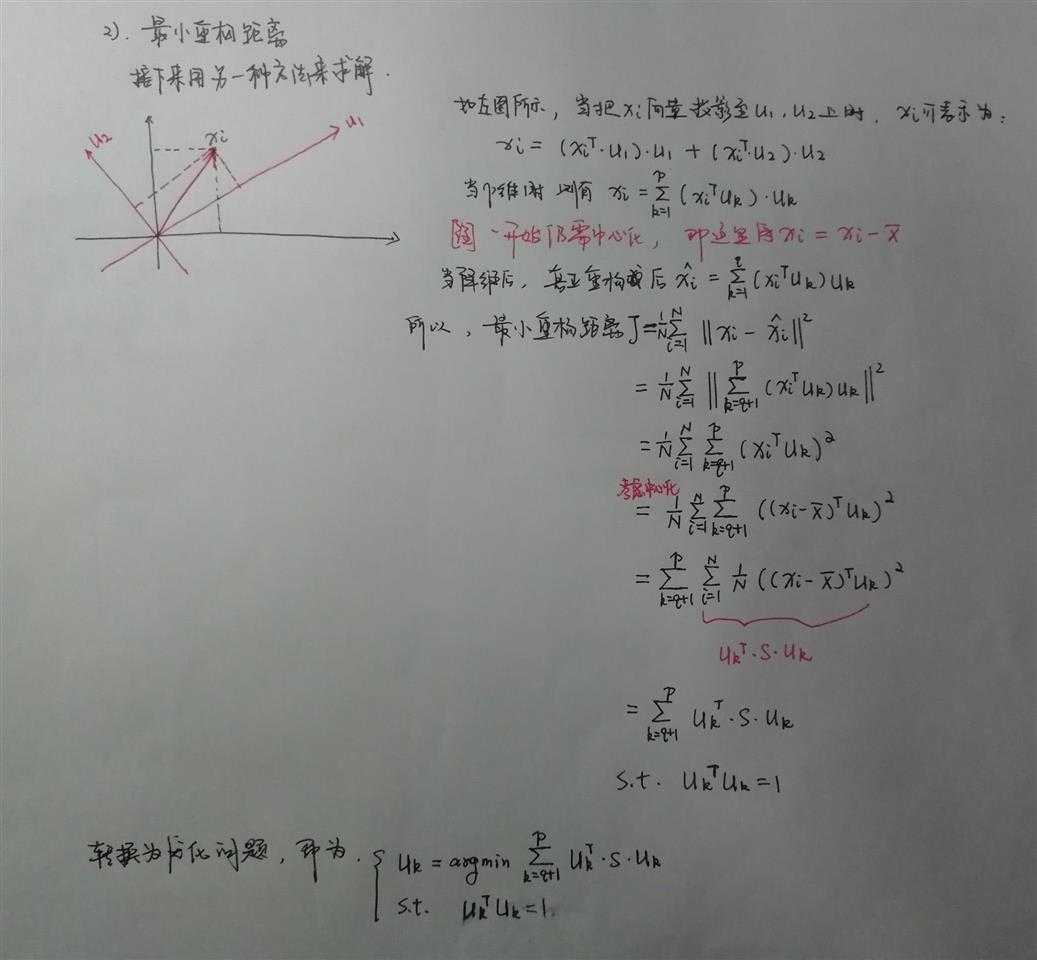 2). 最小重构距离
接下来用另一种方法来求解.
u₂
xi
u₁
如左图所示, 当把 xi 向量投影至 u₁, u₂ 上时, xi 可表示为:
xi = (xiᵀ·u₁)·u₁ + (xiᵀ·u₂)·u₂
当p维时 则有 xi = ∑_{k=1}^{p} (xiᵀuk)·uk
一开始仍需中心化, 即这里的 xi = xi - x̄
当降维后, 真正重构后 x̂i = ∑_{k=1}^{q} (xiᵀuk)uk
所以, 最小重构距离 J = 1/N ∑_{i=1}^{N} ‖xi - x̂i‖²
= 1/N ∑_{i=1}^{N} ‖∑_{k=q+1}^{p} (xiᵀuk)uk‖²
= 1/N ∑_{i=1}^{N} ∑_{k=q+1}^{p} (xiᵀuk)²
考虑中心化
= 1/N ∑_{i=1}^{N} ∑_{k=q+1}^{p} ((xi - x̄)ᵀuk)²
= ∑_{k=q+1}^{p} ∑_{i=1}^{N} 1/N ((xi - x̄)ᵀuk)²
ukᵀ·S·uk
= ∑_{k=q+1}^{p} ukᵀ·S·uk
s.t. ukᵀuk = 1
转换为优化问题, 即为. { uk = argmin ∑_{k=q+1}^{p} ukᵀ·S·uk
s.t. ukᵀuk = 1.